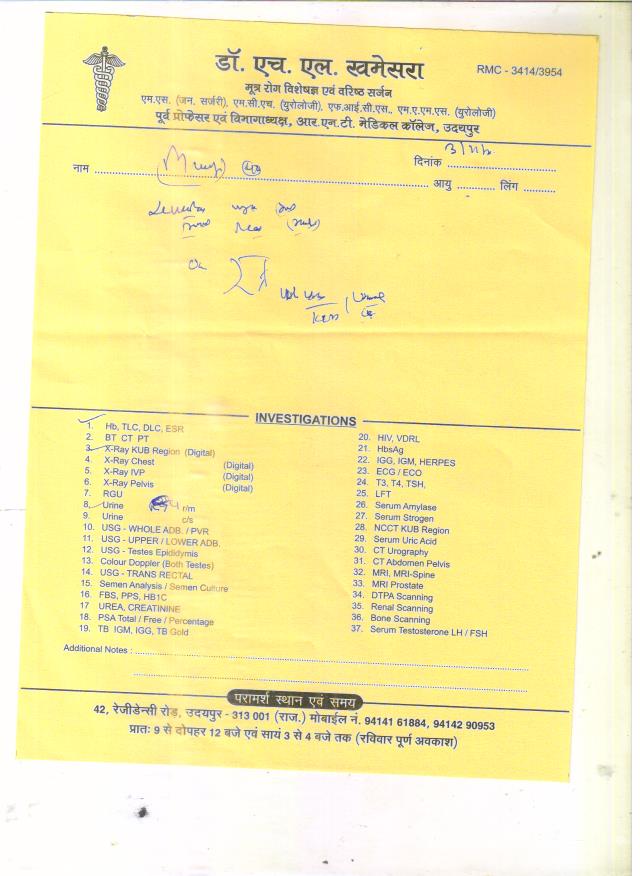 डॉ. एच. एल. खमेसरा
RMC - 3414/3954
मूत्र रोग विशेषज्ञ एवं वरिष्ठ सर्जन
एम.एस. (जन. सर्जरी), एम.सी.एच. (युरोलोजी), एफ.आई.सी.एस., एम.ए.एम.एस. (युरोलोजी)
पूर्व प्रोफेसर एवं विभागाध्यक्ष, आर.एन.टी. मेडिकल कॉलेज, उदयपुर
दिनांक
नाम
आयु लिंग
INVESTIGATIONS
1. Hb, TLC, DLC, ESR
2. BT CT PT
3. X-Ray KUB Region (Digital)
4. X-Ray Chest (Digital)
5. X-Ray IVP (Digital)
6. X-Ray Pelvis (Digital)
7. RGU
8. Urine r/m
9. Urine c/s
10. USG - WHOLE ADB. / PVR
11. USG - UPPER / LOWER ADB.
12. USG - Testes Epididymis
13. Colour Doppler (Both Testes)
14. USG - TRANS RECTAL
15. Semen Analysis / Semen Culture
16. FBS, PPS, HB1C
17 UREA, CREATININE
18. PSA Total / Free / Percentage
19. TB IGM, IGG, TB Gold
20. HIV, VDRL
21. HbsAg
22. IGG, IGM, HERPES
23. ECG / ECO
24. T3, T4, TSH,
25. LFT
26. Serum Amylase
27. Serum Strogen
28. NCCT KUB Region
29. Serum Uric Acid
30. CT Urography
31. CT Abdomen Pelvis
32. MRI, MRI-Spine
33. MRI Prostate
34. DTPA Scanning
35. Renal Scanning
36. Bone Scanning
37. Serum Testosterone LH / FSH
Additional Notes :
परामर्श स्थान एवं समय
42, रेजीडेन्सी रोड, उदयपुर - 313 001 (राज.) मोबाईल नं. 94141 61884, 94142 90953
प्रातः 9 से दोपहर 12 बजे एवं सायं 3 से 4 बजे तक (रविवार पूर्ण अवकाश)